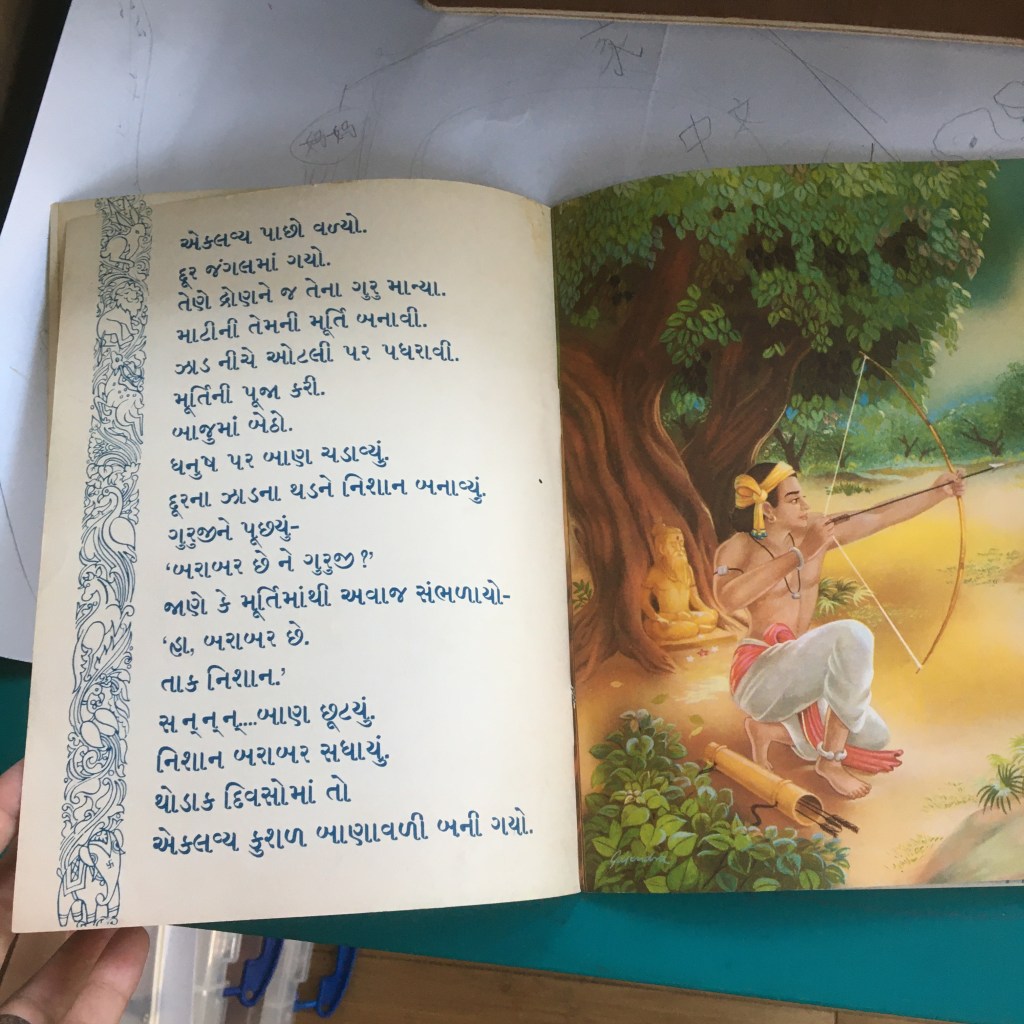 中文
એકલવ્ય પાછો વળ્યો.
દૂર જંગલમાં ગયો.
તેણે દ્રોણને જ તેના ગુરુ માન્યા.
માટીની તેમની મૂર્તિ બનાવી.
ઝાડ નીચે ઓટલી પર પધરાવી.
મૂર્તિની પૂજા કરી.
બાજુમાં બેઠો.
ધનુષ પર બાણ ચડાવ્યું.
દૂરના ઝાડના થડને નિશાન બનાવ્યું.
ગુરુજીને પૂછયું-
‘બરાબર છે ને ગુરુજી ?’
જાણે કે મૂર્તિમાંથી અવાજ સંભળાયો-
‘હા, બરાબર છે.
તાક નિશાન.’
સ ન્ ન્ ન્....બાણ છૂટયું.
નિશાન બરાબર સધાયું.
થોડાક દિવસોમાં તો
એકલવ્ય કુશળ બાણાવળી બની ગયો.